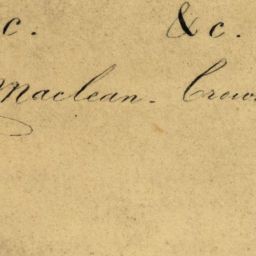 c. &c.
Maclean. Crow